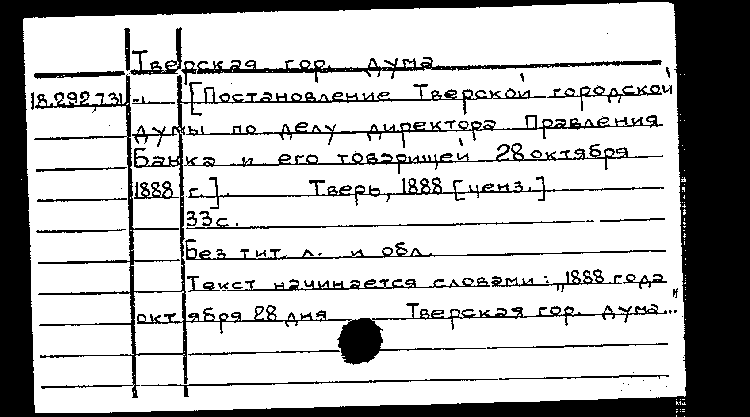 Тверская гор. дума
18.292.731 [Постановление Тверской городской
думы по делу директора Правления
Банка и его товарищей 28 октября
1888 г.]. Тверь, 1888 [ценз.].
33с.
Без тит. л. и обл.
Текст начинается словами: „1888 года
октября 28 дня Тверская гор. дума..."